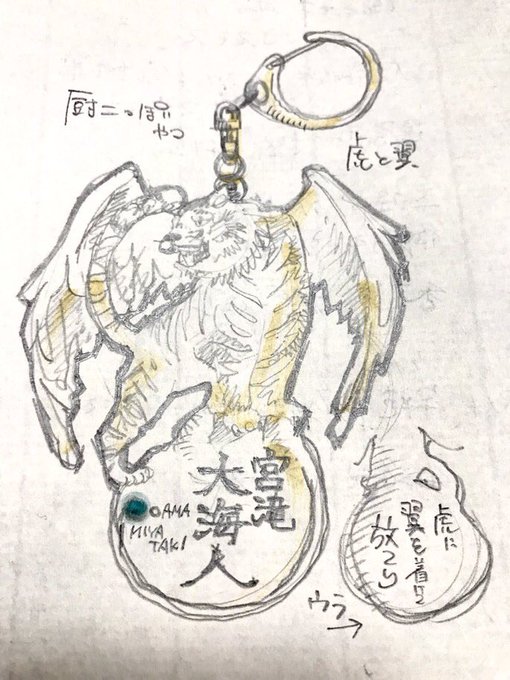 厨二っぽい
やつ
虎と翼
宮滝
大海人
OAMA
MIYA
TAKI
虎に
翼を着け
放てり
ウラ→